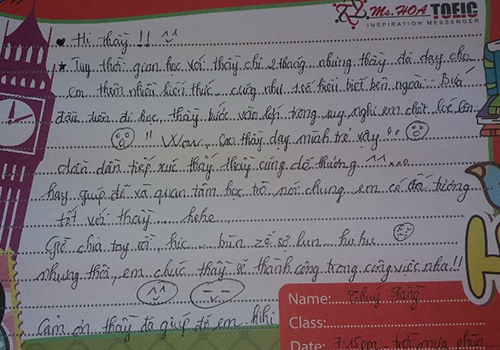 Ms. HOA TOEIC
INSPIRATION MESSENGER
Hi thầy !! ^^
Tuy thời gian học với thầy chỉ 2 tháng nhưng thầy đã dạy cho
em thêm nhiều kiến thức... cũng như 1 số hiểu biết bên ngoài... Buổi
đầu tiên đi học, thầy bước vào lớp trong suy nghĩ em chợt loé lên
!! Wow, sao thầy dạy mình trẻ vậy !!
dần dần tiếp xúc thấy thầy cũng dễ thương ^^...
hay giúp đỡ và quan tâm học trò nói chung em có ấn tượng
tốt với thầy... hehe
Giờ chia tay rồi, hic... bùn zễ sợ lun hu hu
nhưng thôi, em chúc thầy sẽ thành công trong công việc nha!!
Cảm ơn thầy đã giúp đỡ em hihi
Name: Thuỳ
Class:
Date: 7:15 - trời mưa phùn